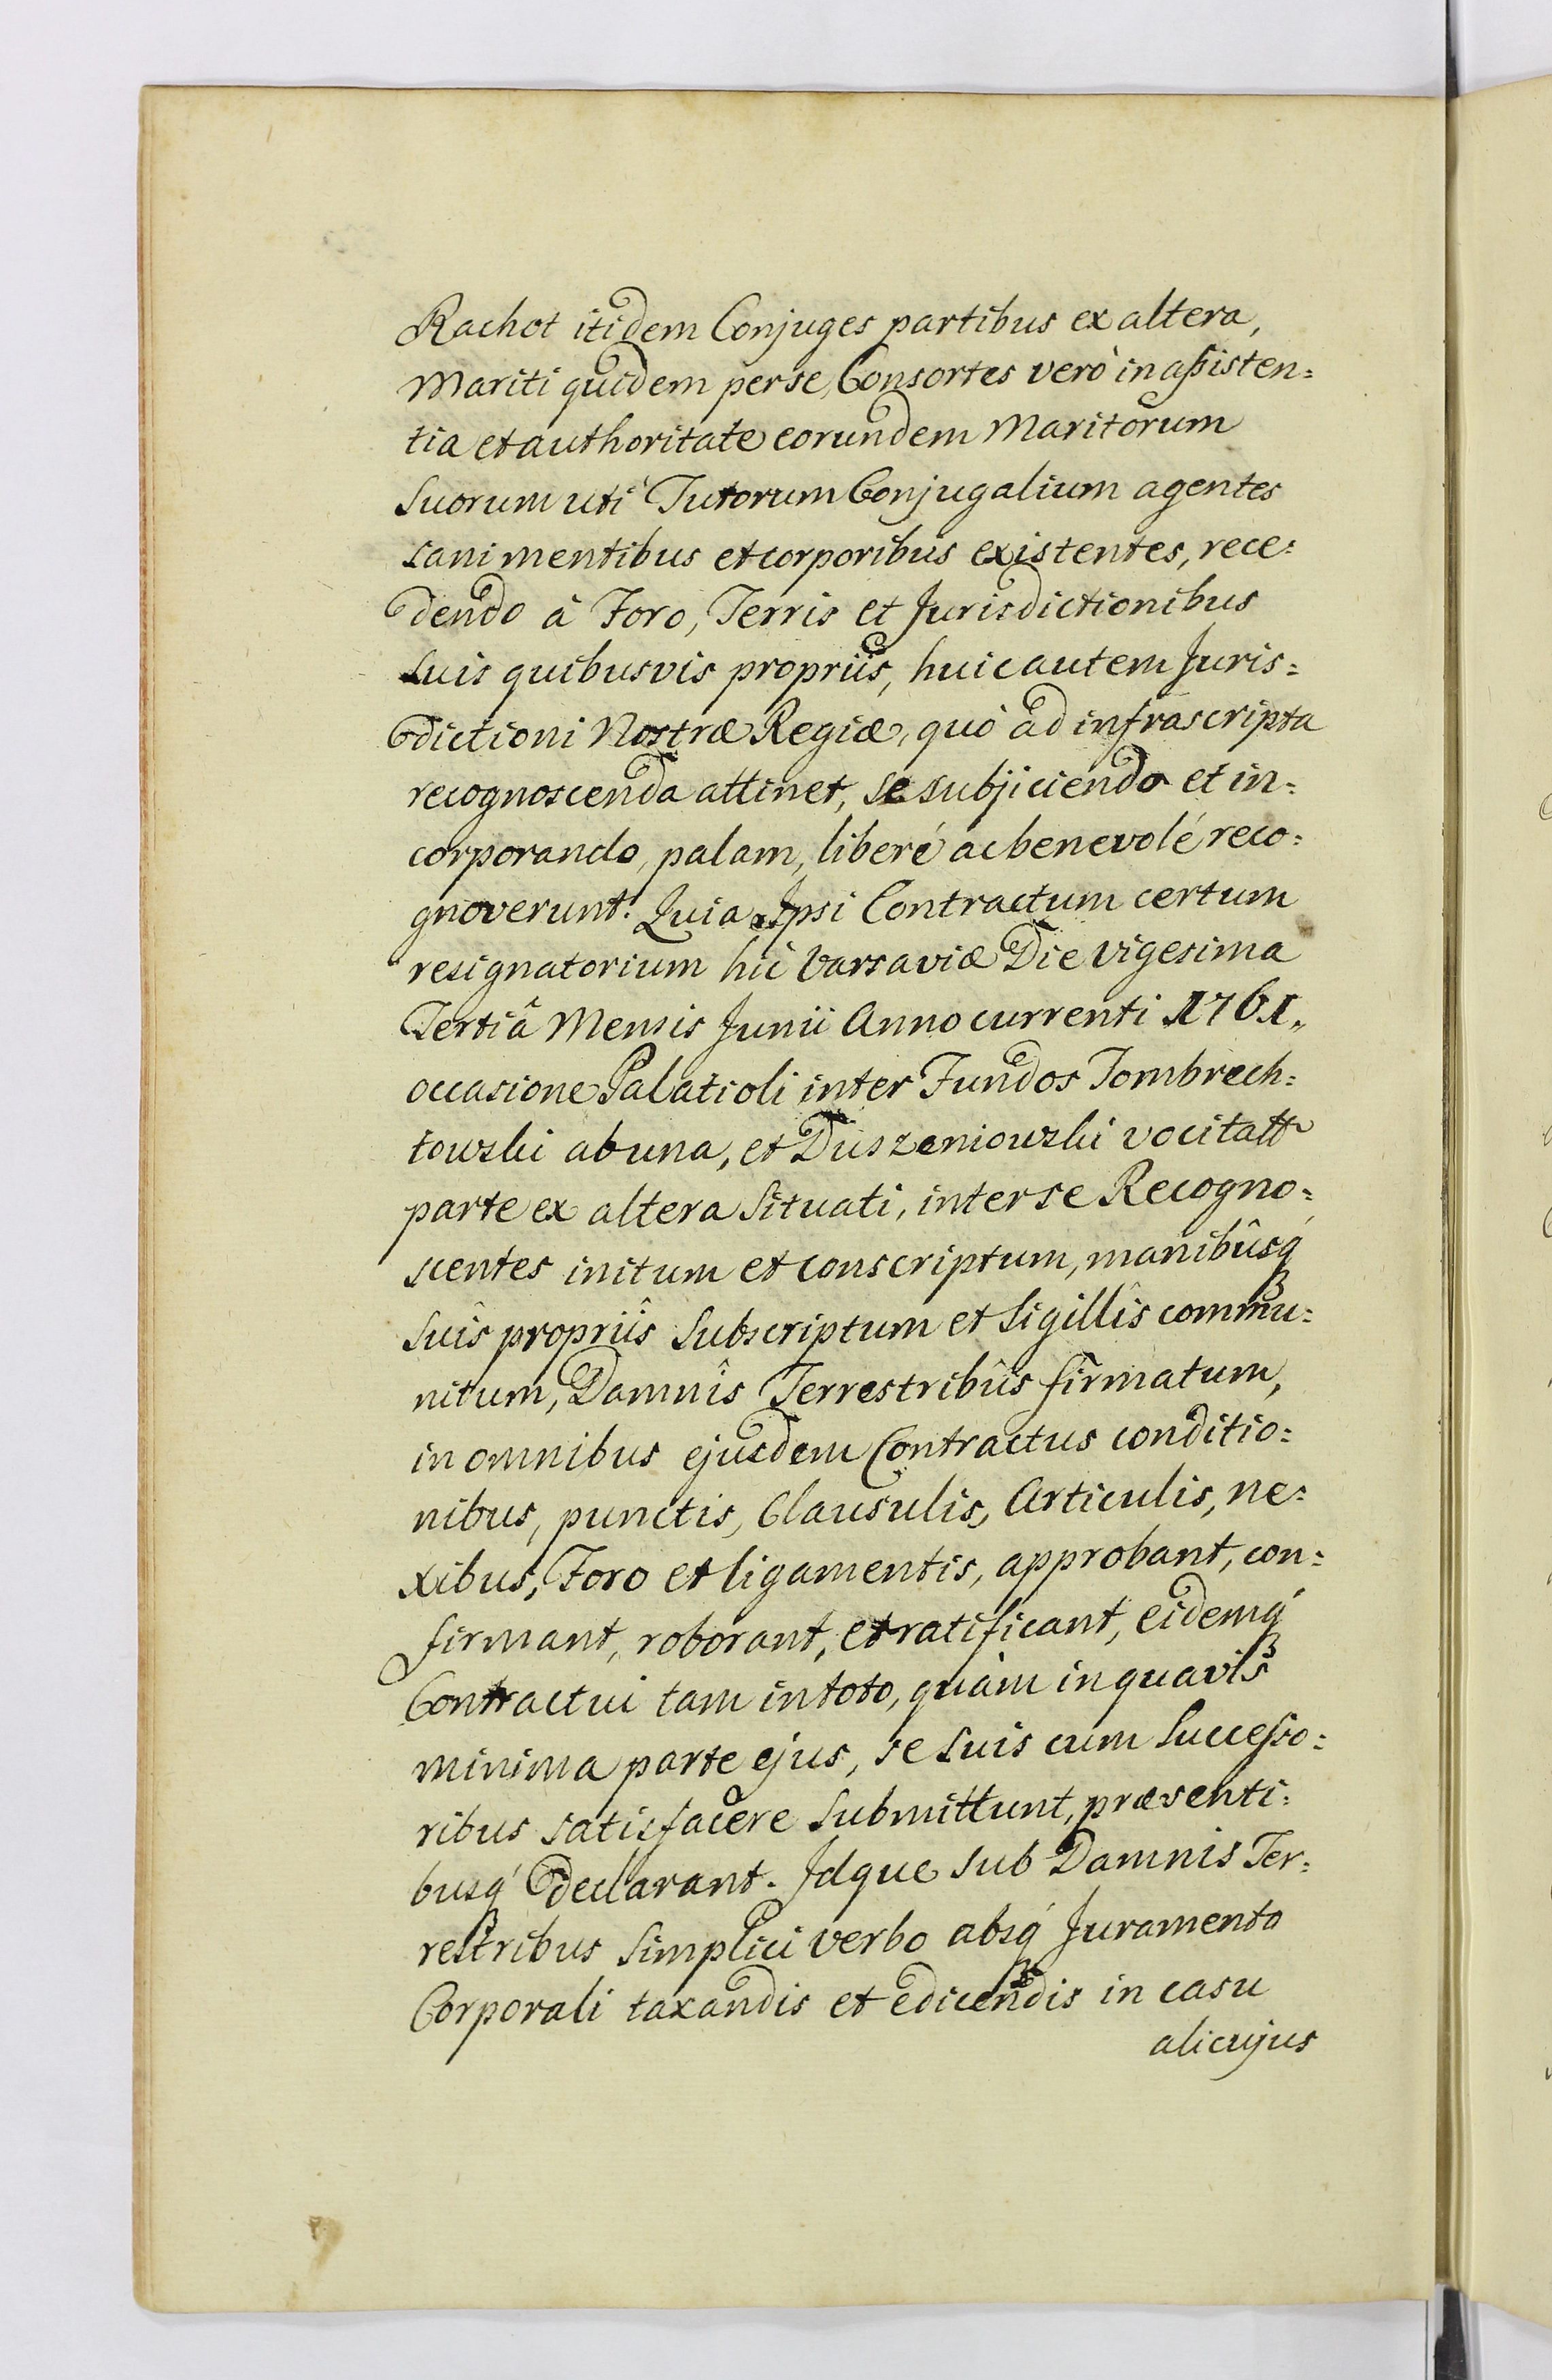 Rachot itidem Conjuges partibus ex altera,
Mariti quidem per se, Consortes verò in aſsisten=
tia et authoritate eorundem Maritorum
Suorum uti Tutorum Conjugalium agentes
sani mentibus et corporibus existentes, rece=
dendo à Foro, Terris et Jurisdictionibus
suis quibusvis propriis, huic autem Juris=
dictioni Nostræ Regiæ, quò ad infrascripta
recognoscenda attinet, se subjiciendo et in=
corporando, palam, liberé ac benevolé reco=
gnoverunt: Quia Ipsi Contractum certum
resignatorium hic Varsaviæ Die vigesima
Tertiâ Mensis Junii Anno currenti 1761,
occasione Palatioli inter Fundos Tombrech=
towski ab una, et Duszeniowski vocitatt
parte ex altera Situati, inter se Recogno=
scentes initum et conscriptum, manibûsq́ꝫ
Suîs propriîs Subscriptum et Sigillîs commu=
nitum, Damnîs Terrestribûs firmatum,
in omnibus ejusdem Contractus conditio=
nibus, punctis, Clausulis, Articulis, ne=
xibus, Foro et ligamentis, approbant, con=
firmant, roborant, et ratificant, eidemq́ꝫ
Contractui tam in toto, quàm in quavis
minima parte ejus, se suis cum Succeſso=
ribus satisfacere Submittunt, præsenti=
busq́ꝫ declarant. Idque Sub Damnis Ter=
restribus Simplici verbo absq́ꝫ Juramento
Corporali taxandis et edicendis in casu
alicujus